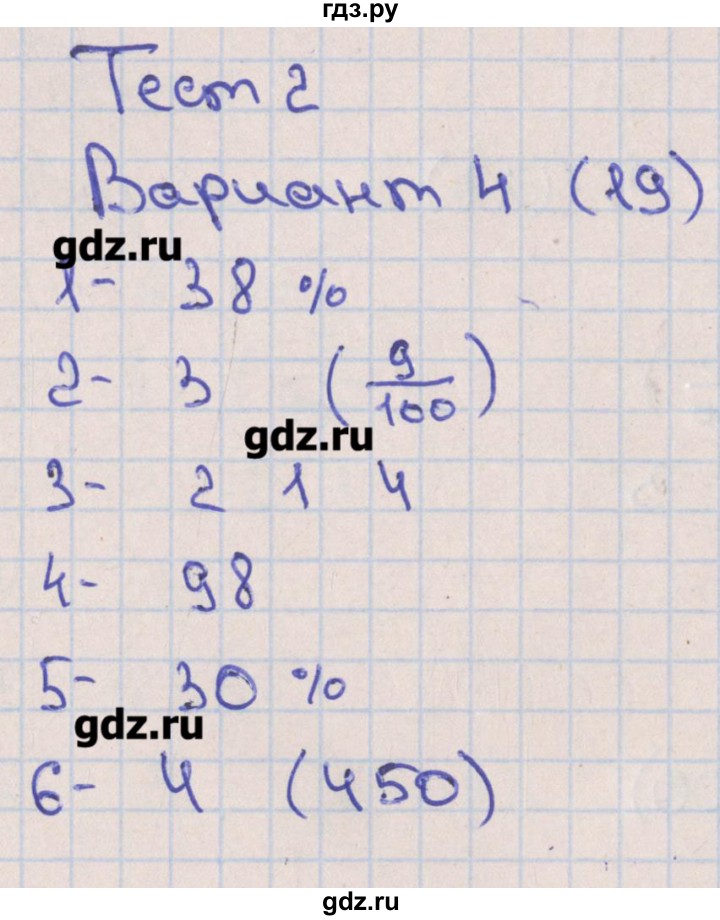 гдз.ру
Тест 2
Вариант 4 (19)
gdz.ru
1- 38 %
2- 3 (9/100)
gdz.ru
3- 2 1 4
4- 98
5- 30 %
gdz.ru
6- 4 (450)
gdz.ru